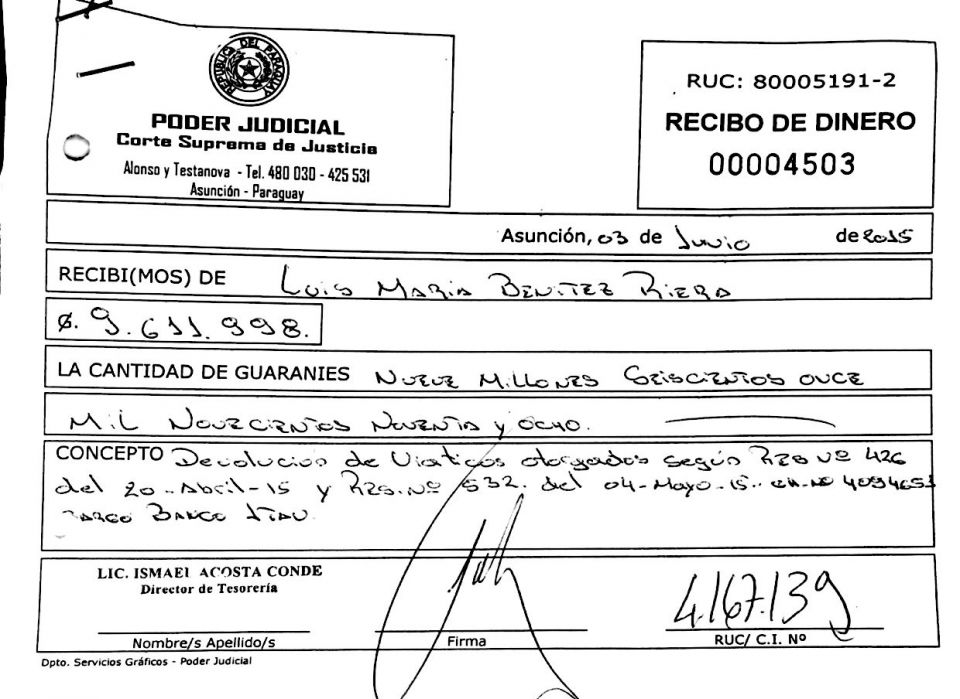 REPUBLICA DEL PARAGUAY
PODER JUDICIAL
Corte Suprema de Justicia
Alonso y Testanova - Tel. 480 030 - 425 531
Asunción - Paraguay
RUC: 80005191-2
RECIBO DE DINERO
00004503
Asunción, 03 de Junio de 2015
RECIBI(MOS) DE Luis Maria Benitez Riera
₲. 9.611.998.
LA CANTIDAD DE GUARANIES Nueve Millones Seiscientos once
Mil Novecientos Noventa y ocho.
CONCEPTO Devolucion de Viaticos otorgados según Res Nº 426
del 20-Abril-15 y Res. Nº 532. del 04-Mayo-15. CH. Nº
cargo Banco Itau.
LIC. ISMAEL ACOSTA CONDE
Director de Tesorería
4.167.139
Nombre/s Apellido/s Firma RUC/ C.I. Nº
Dpto. Servicios Gráficos - Poder Judicial